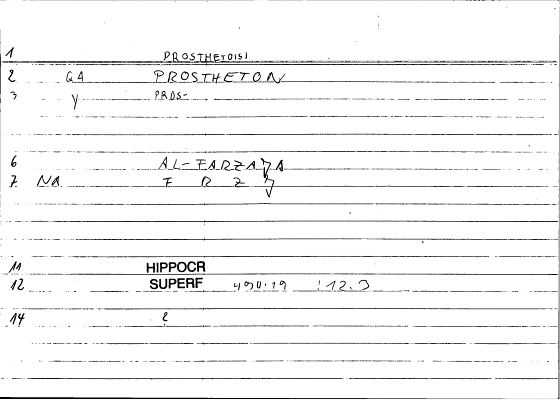 1 PROSTHETOISI
2 GA PROSTHETON
3 Y PROS-
6 AL-FARZAGA
7. NA F R Z G
11 HIPPOCR
12 SUPERF 490.19 12.3
14 2